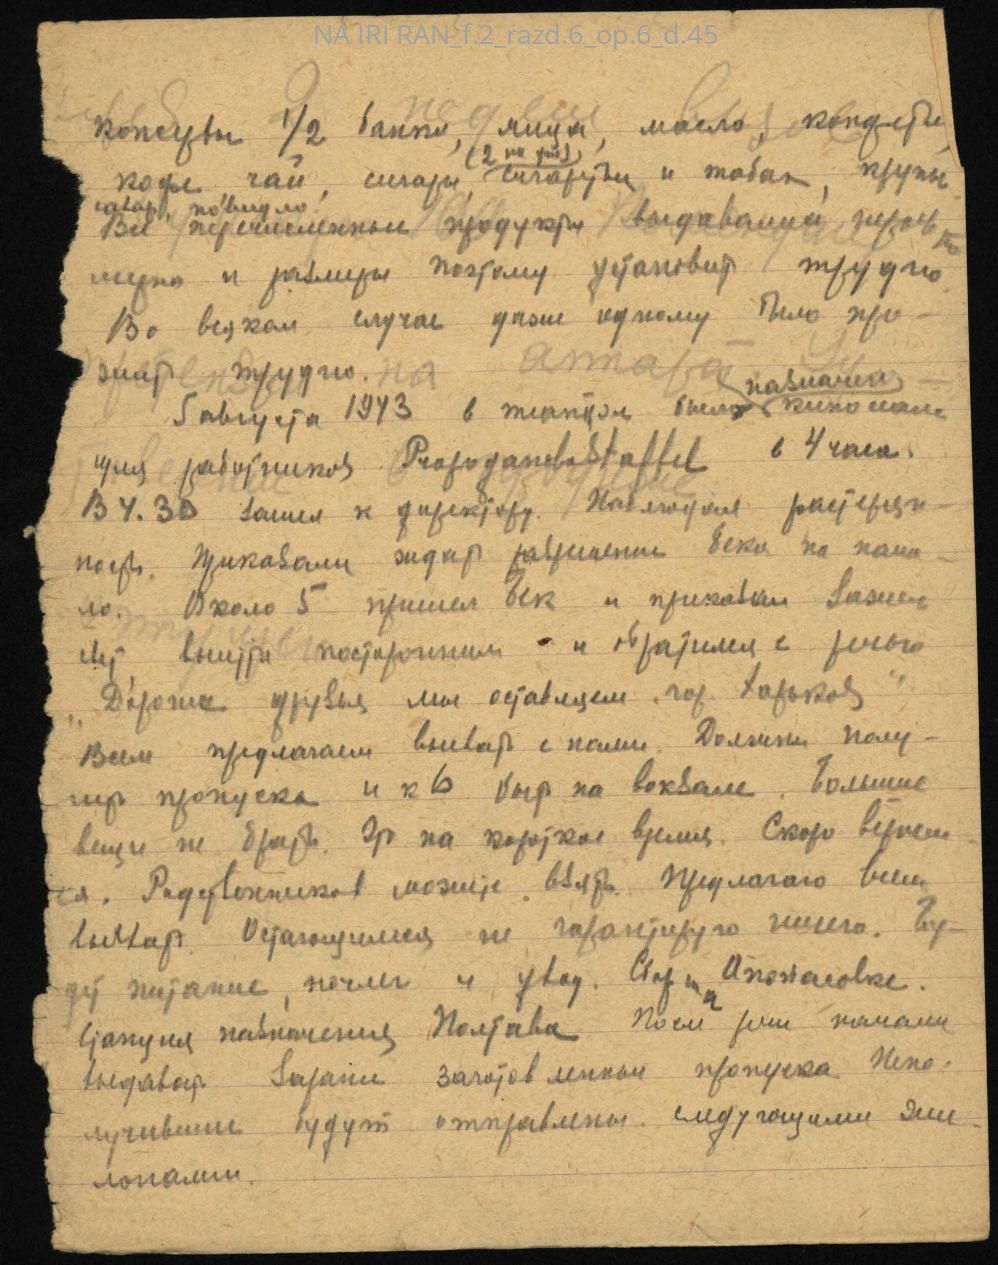 NA IRI RAN_f.2_razd.6_op.6_d.45
консервы 1/2 банки, яица, масло, конфеты,
(2 на уп)
кофе чай, сигары, сигареты и табак, крупы
сахар, повидло,
Все перечисленные продукты выдавались неравно
мерно и размеры поэтому установит трудно.
Во всяком случае даже одному было про-
жит трудно.
назначен
5 августа 1943 в было киносеанс
для работников PropogandaStaffel в 4 часа.
В 4.30 зашел к директору. Наблюдал растерян-
ность. Приказали ждат разрешение Бека на нача-
ло. Около 5 пришел Бек и приказал
выйти посторонним и обратился с речью
„Дорогие друзья мы оставляем гор. Харьков"
Всем предлагаем выехат с нами. Должны полу-
чит пропуска и к 6 быт на вокзале. Большие
вещи не брать. Эт на короткое время. Скоро вернем-
ся. Родственников можете взять. Предлагаю всем
выехат. Остающимся не гарантирую ничего. Бу-
дет питание, ночлег и уход. Сбор на Аконасовке.
Станция назначения Полтава После речи начали
выдават заранее заготовленные пропуска. Непо-
лучившие будут отправлены следующими эше-
лонами.